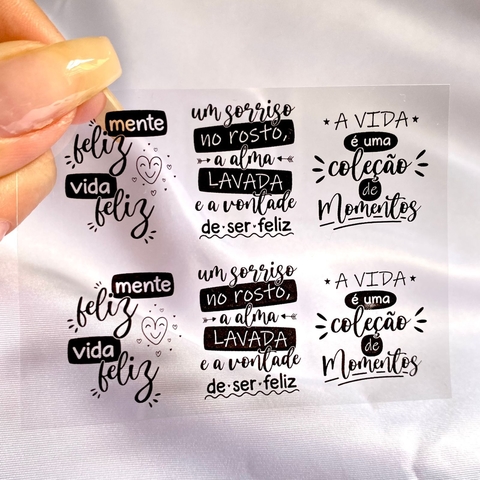 mente
feliz
vida
feliz
um sorriso
no rosto,
a alma
LAVADA
e a vontade
de·ser·feliz
A VIDA
é uma
coleção
de
Momentos
mente
feliz
vida
feliz
um sorriso
no rosto,
a alma
LAVADA
e a vontade
de·ser·feliz
A VIDA
é uma
coleção
de
Momentos